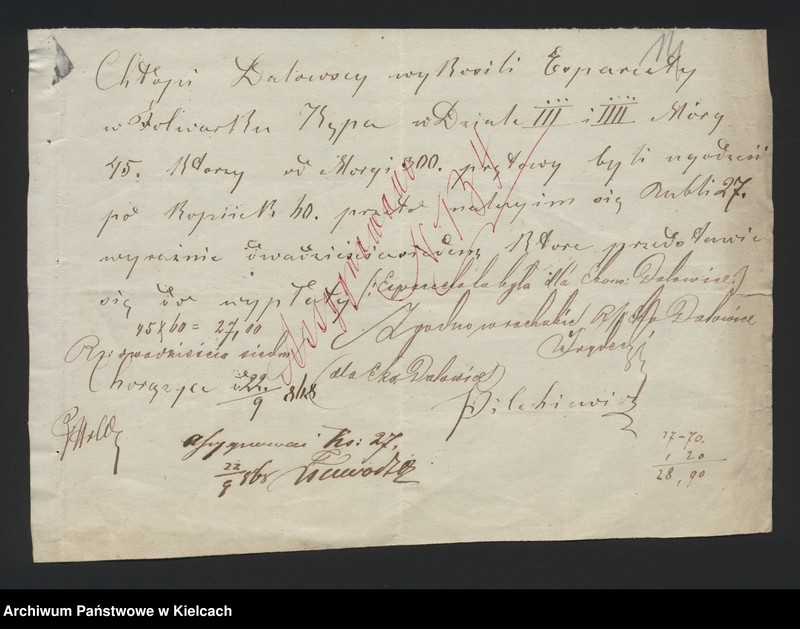 14
Chłopi Dalowscy wykosili Esparcety
w Folwarku Kępa w Dziale III i IIII Mórg
45. Ktorzy od Morgi 300. prętowy byli ugodzeni
po Kopiiek 60. przeto należy im się Rubli 27.
wyraźnie dwadzieścia siedem Ktore przedstawia
się do wypłaty /: Esparceta ta była dla Ekono: Dalowice :/
45 x 60 = 27,00
Zgodno w rachubie Dalowice
Rs: dwadzieścia siedm
Chorążyce 22/9 868
(dla Eko. Dalowice)
Pilchiewicz
Assygnowano
N 134
asygnować Rs: 27,
22/9 868
27-70.
1 20
28,90
Archiwum Państwowe w Kielcach